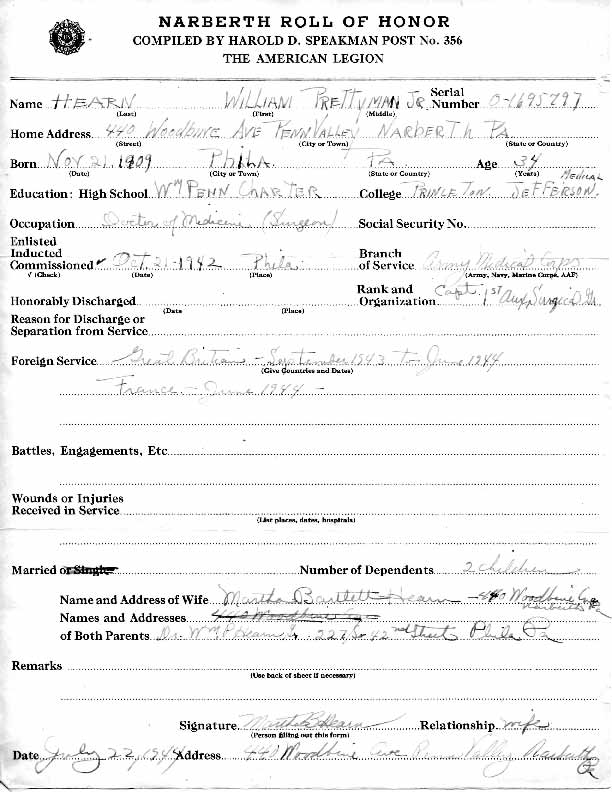 NARBERTH ROLL OF HONOR
COMPILED BY HAROLD D. SPEAKMAN POST No. 356
THE AMERICAN LEGION
Name HEARN WILLIAM PRETTYMAN JR Serial Number O-1695797
(Last) (First) (Middle)
Home Address 440 Woodbine AVE PENN VALLEY NARBERTH PA
(Street) (City or Town) (State or Country)
Born NOV 21, 1909 PHILA PA Age 34
(Date) (City or Town) (State or Country) (Years)
MEDICAL
Education: High School WM PENN CHARTER College PRINCETON JEFFERSON.
Occupation Doctor of Medicine (Surgeon) Social Security No.
Enlisted
Inducted
Commissioned ✓ Oct. 21-1942 Phila Branch of Service Army Medical Corps
√ (Check) (Date) (Place) (Army, Navy, Marine Corps, AAF)
Honorably Discharged Rank and Organization Capt. 1ST Aux Surgical Gr.
(Date (Place)
Reason for Discharge or
Separation from Service
Foreign Service Great Britain - September 1943 to June 1944
(Give Countries and Dates)
France - June 1944 -
Battles, Engagements, Etc
Wounds or Injuries
Received in Service
(List places, dates, hospitals)
Married or Single Number of Dependents 2 children
Name and Address of Wife Martha Bartlett Hearn - 440 Woodbine Ave
Narberth Pa
Names and Addresses 440 Woodbine Ave
of Both Parents Dr. Wm P Hearn 227 So 42nd Street Phila Pa
Remarks
(Use back of sheet if necessary)
Signature Martha B Hearn Relationship wife
(Person filling out this form)
Date July 22, 1944 Address 440 Woodbine Ave Penn Valley Narberth
Pa